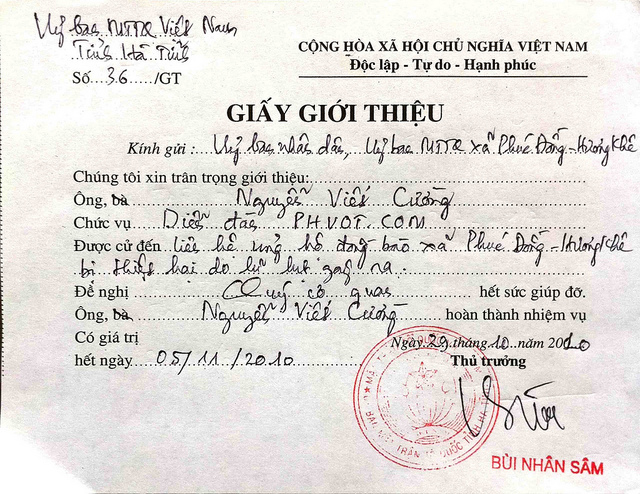 Uỷ ban MTTQ Việt Nam
Tỉnh Hà Tĩnh
Số....36..../GT
CỘNG HÒA XÃ HỘI CHỦ NGHĨA VIỆT NAM
Độc lập - Tự do - Hạnh phúc
GIẤY GIỚI THIỆU
Kính gửi : Uỷ ban nhân dân, Uỷ ban MTTQ xã Phúc Đồng - Hương Khê
Chúng tôi xin trân trọng giới thiệu:
Ông, bà Nguyễn Viết Cường
Chức vụ Diễn đàn PHVOT.COM
Được cử đến liên hệ ủng hộ đồng bào xã Phúc Đồng - Hương Khê
bị thiệt hại do lũ lụt gây ra.
Đề nghị Quý cơ quan hết sức giúp đỡ.
Ông, bà Nguyễn Viết Cường hoàn thành nhiệm vụ
Có giá trị
Ngày 29 tháng 10 năm 2010
hết ngày 05/11/2010
Thủ trưởng
BÙI NHÂN SÂM